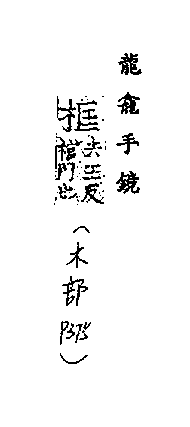 龍龕手鏡
框去王反棺門也(木部P375)